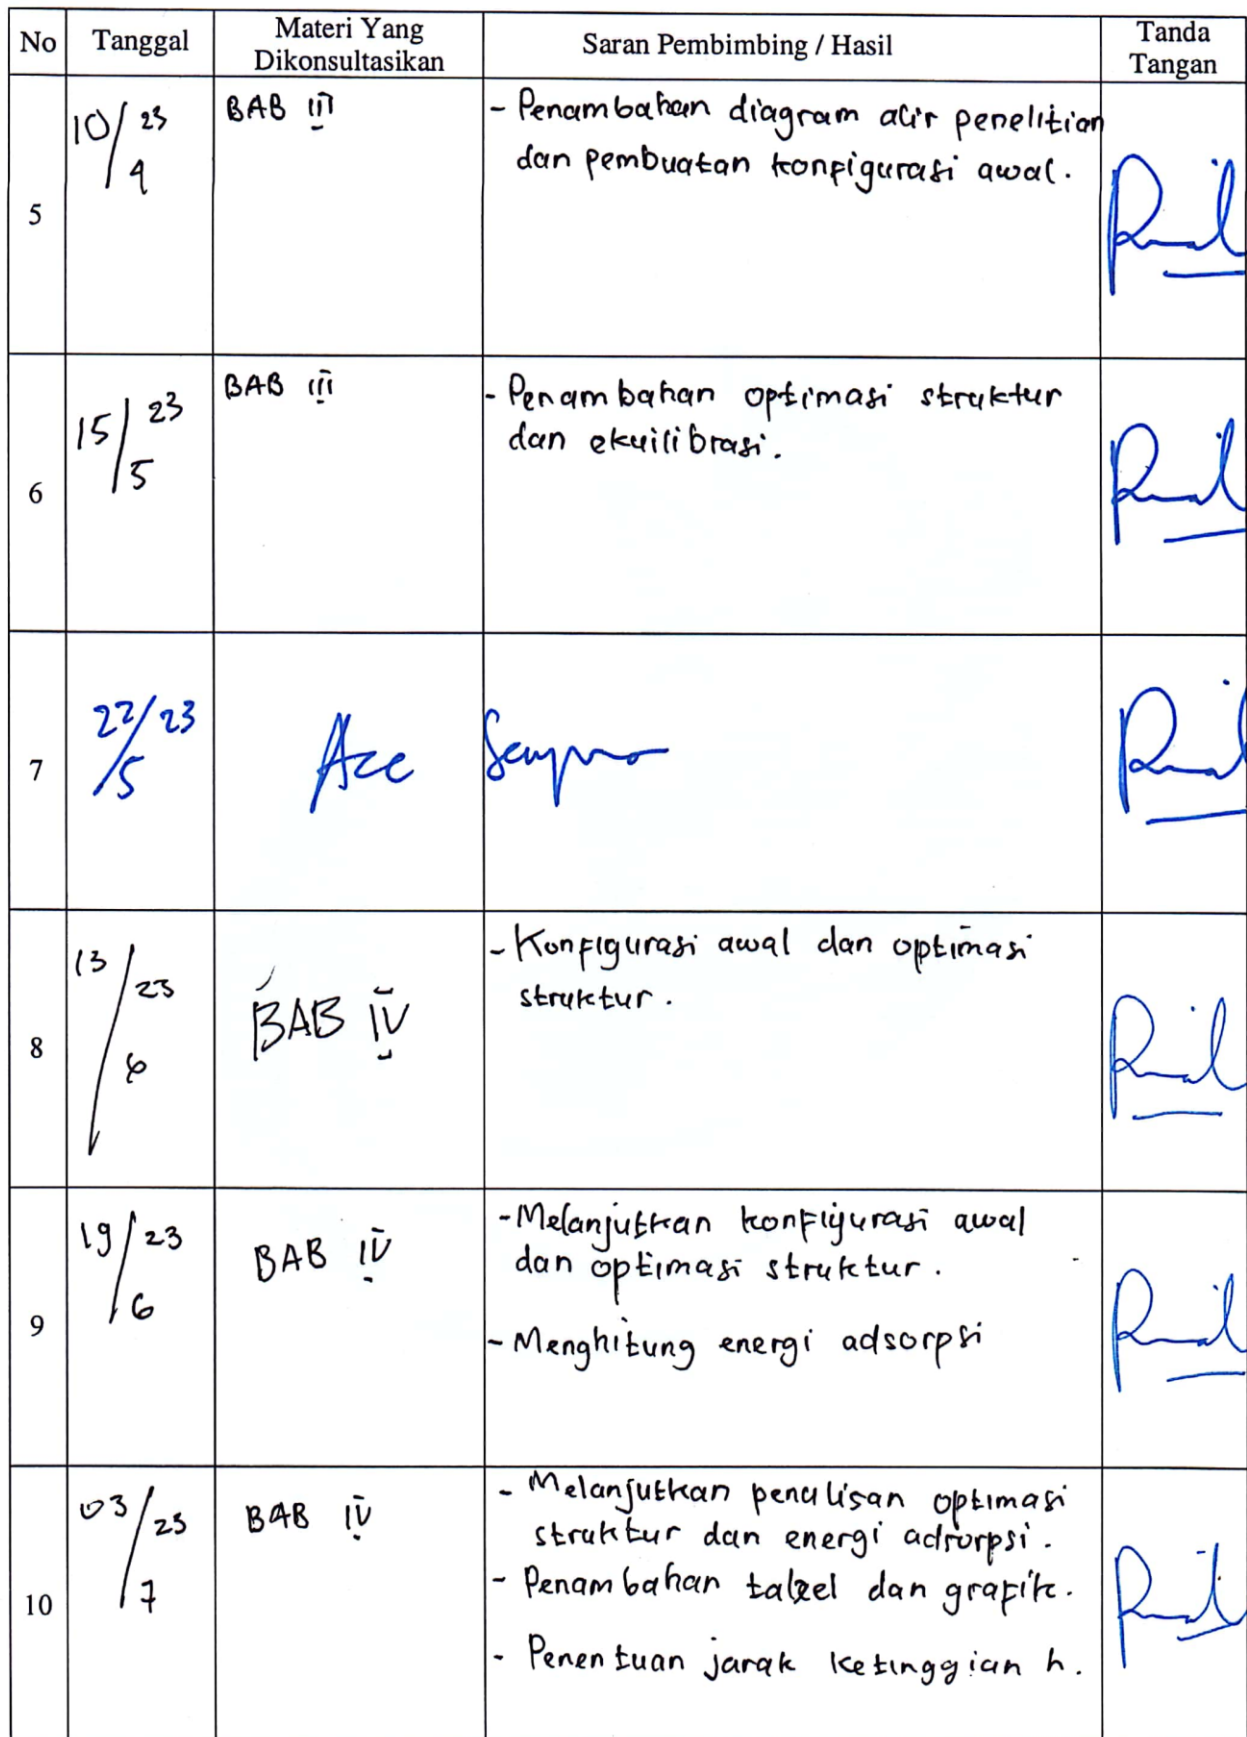 No Tanggal Materi Yang Dikonsultasikan Saran Pembimbing / Hasil Tanda Tangan
5 10/4 23 BAB III - Penambahan diagram alir penelitian
dan pembuatan konfigurasi awal.
6 15/5 23 BAB III - Penambahan optimasi struktur
dan ekuilibrasi.
7 22/5 23 Acc Sempro
8 13/6 23 BAB IV - Konfigurasi awal dan optimasi
struktur.
9 19/6 23 BAB IV - Melanjutkan konfigurasi awal
dan optimasi struktur.
- Menghitung energi adsorpsi
10 03/7 23 BAB IV - Melanjutkan penulisan optimasi
struktur dan energi adsorpsi.
- Penambahan tabel dan grafik.
- Penentuan jarak ketinggian h.